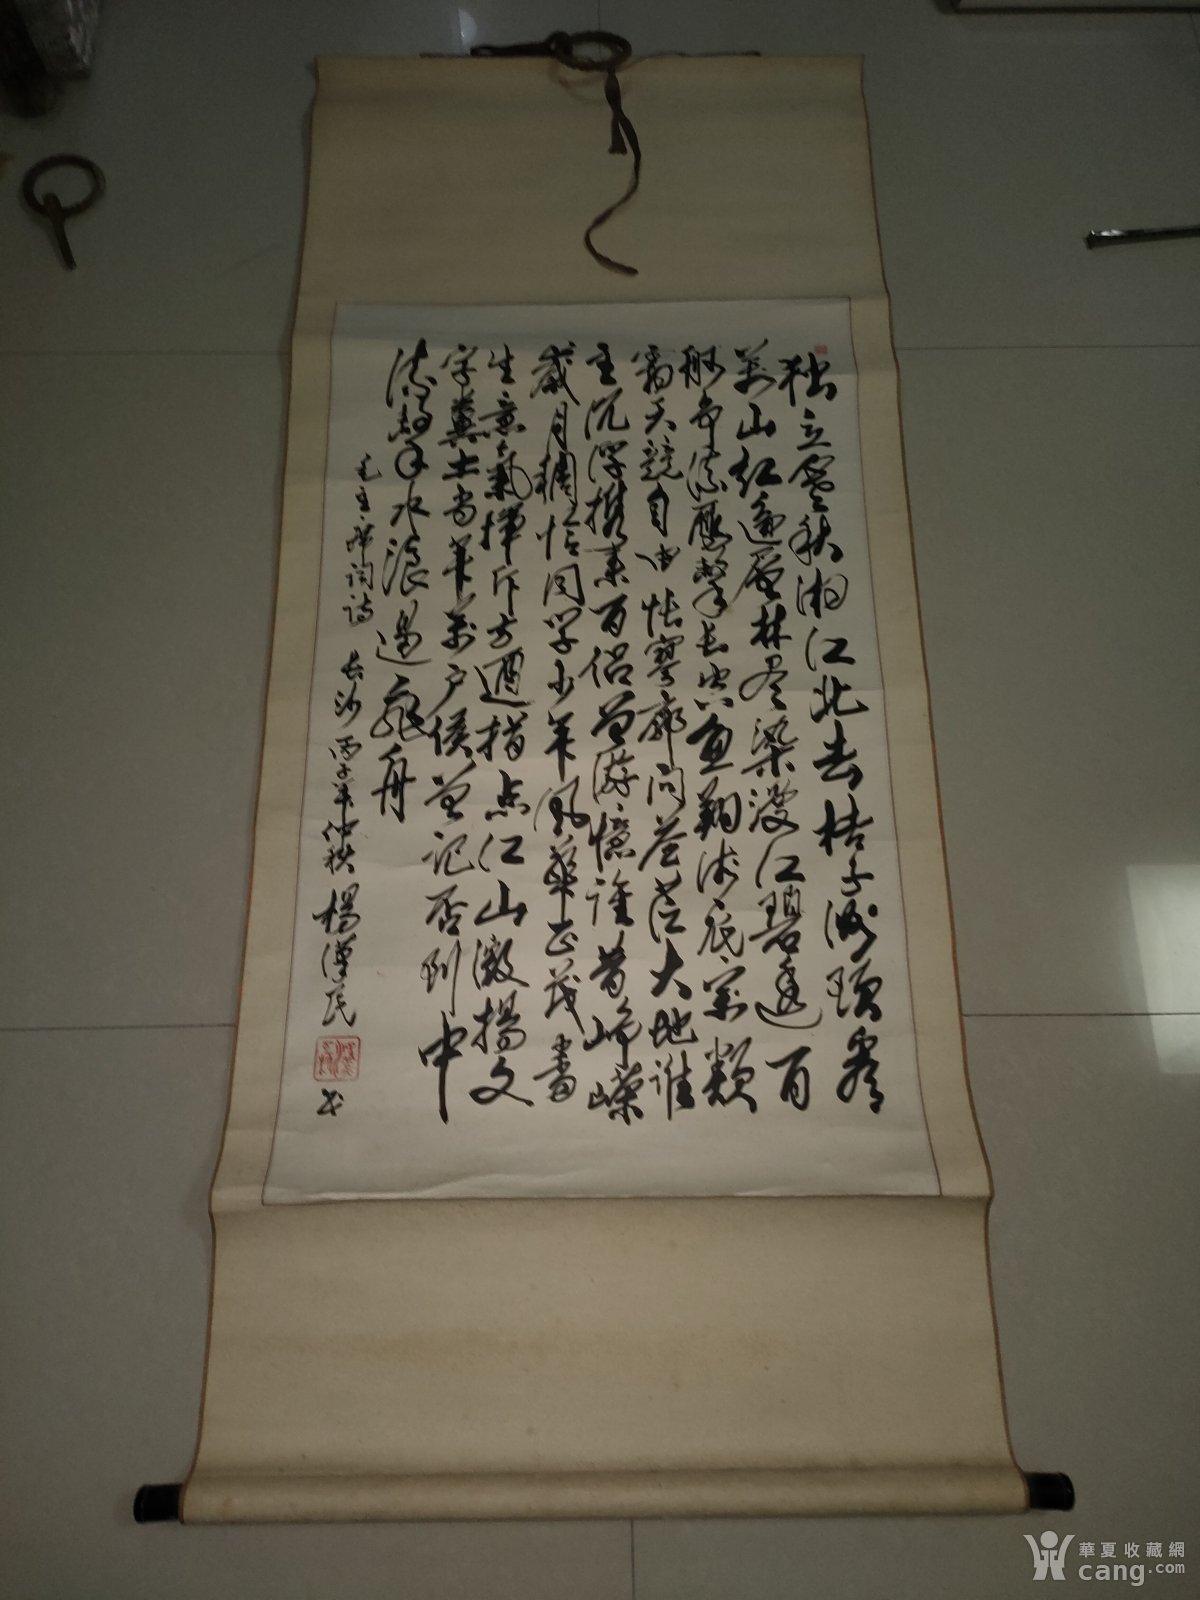 独立寒秋湘江北去桔子洲頭看
萬山红遍层林尽染漫江碧透百
舸争流鷹擊长空鱼翔浅底萬類
霜天競自由怅寥廓问苍茫大地谁
主沉浮携来百侣曾游憶往昔峥嵘
歲月稠恰同学少年风華正茂書
生意氣揮斥方遒指点江山激揚文
字糞土当年萬户侯曾记否到中
流擊水浪遏飛舟
毛主席词诗 长沙 丙子年仲秋 楊漢民 书
華夏收藏網
cang.com